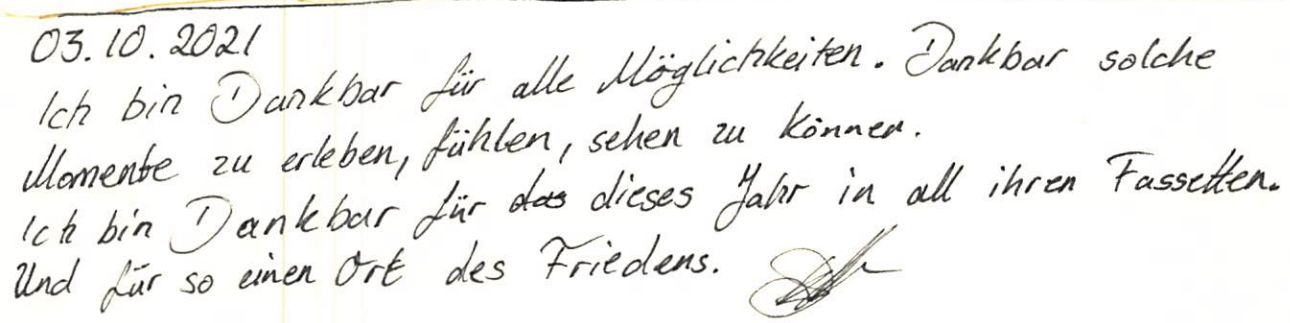 03.10.2021
Ich bin Dankbar für alle Möglichkeiten. Dankbar solche
Momente zu erleben, fühlen, sehen zu können.
Ich bin Dankbar für das dieses Jahr in all ihren Fassetten.
Und für so einen Ort des Friedens.